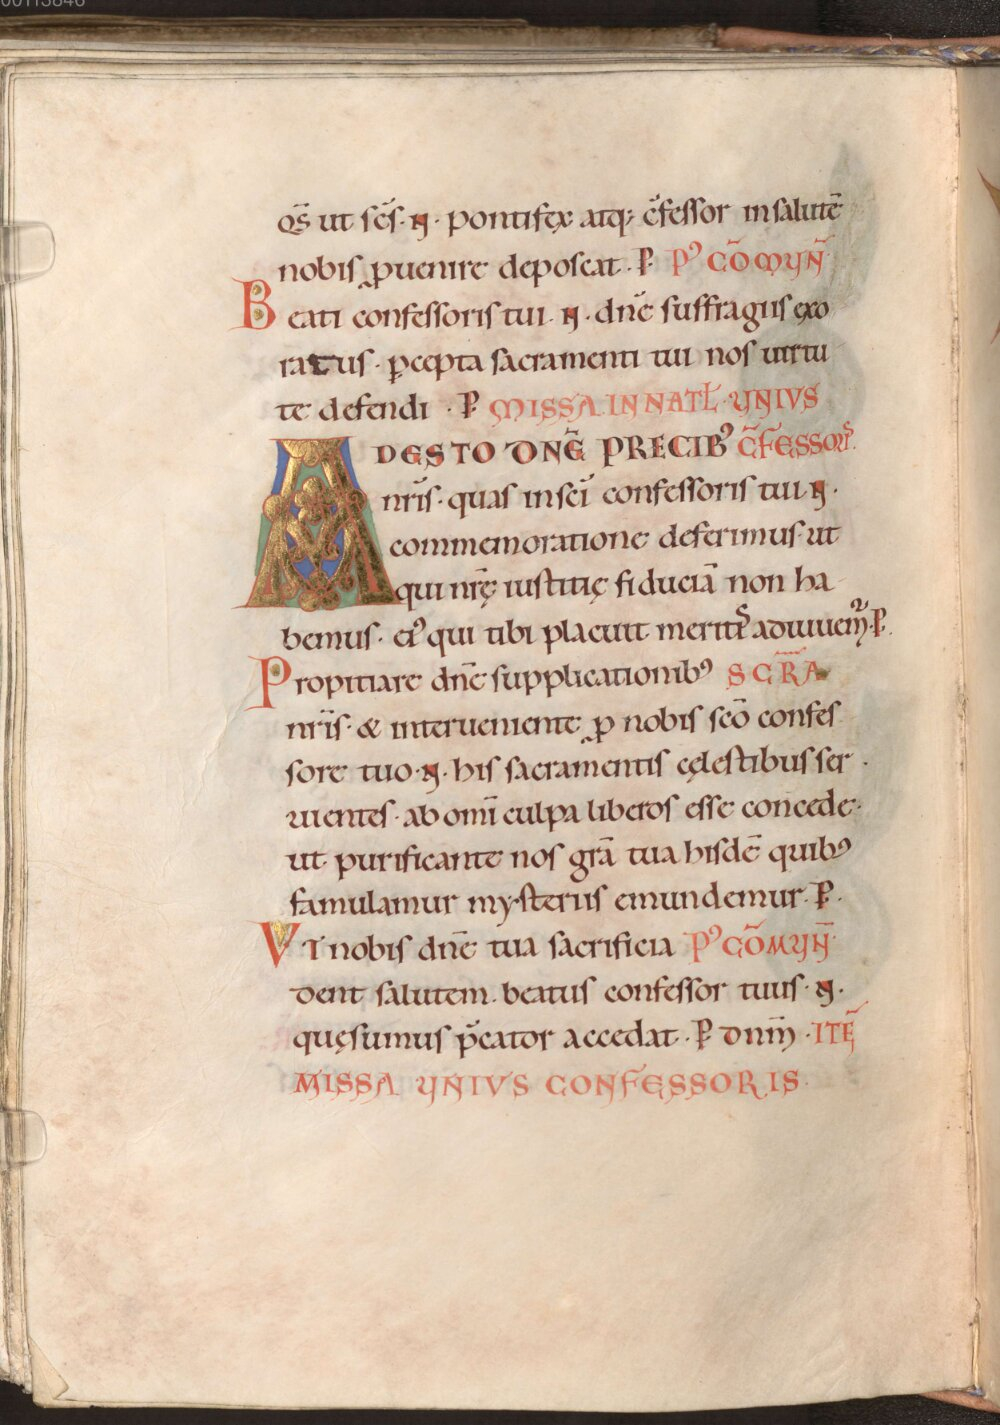 Q̅S̅ ut sc̅s · N · pontifex atq; c̅fessor in salute̅
nobis ꝓuenire deposcat · P̱ Pꝰ CO̅MVN̅
Beati confessoris tui · N · dn̅e suffragiis exo
ratus · p̲cepta sacramenti tui nos uirtu
te defendi · P̱ MISSA IN NATL̅ VNIVS
ADESTO DN̅E PRECIBꝰ C̅FESSORI̅S
nr̅is · quas in sc̅i confessoris tui · N ·
commemoratione deferimus · ut
qui nr̅ę iustitię fiducia̅ non ha
bemus · eiꝰ qui tibi placuit merit̅s adiuuem̅ · P̱ .
Propitiare dn̅e supplicationibꝰ SECR̅A
nr̅is · & interueniente ꝓ nobis sc̅o confes
sore tuo · N · his sacramentis cęlestibus ser
uientes · ab om̅i culpa liberos esse concede ·
ut purificante nos gr̅a tua hisde̅ quibꝰ
famulamur mysteriis emundemur · P̱ .
VT nobis dn̅e tua sacrificia Pꝰ CO̅MVN̅
dent salutem · beatus confessor tuus · N ·
quęsumus p̅cator accedat · P̱ Dn̅m · ITE̅
MISSA VNIVS CONFESSORIS